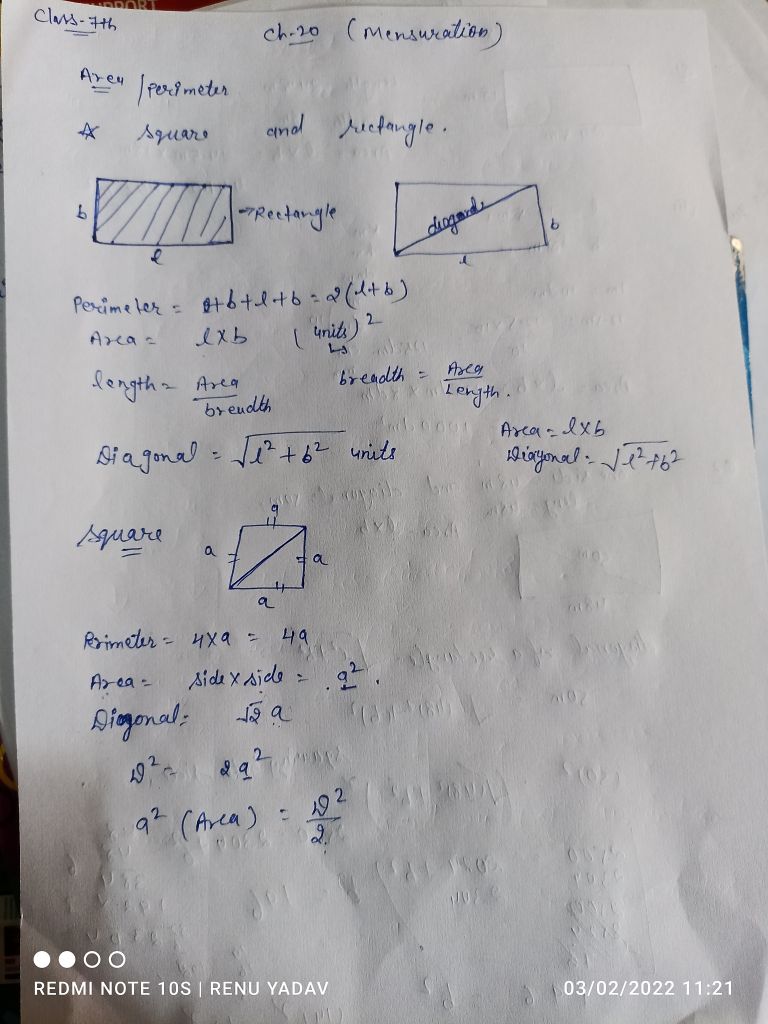 Class-7th
Ch-20 (Mensuration)
Area /Perimeter
☆ Square and rectangle.
b
→Rectangle
l
diagonal
b
l
Perimeter = l+b+l+b = 2(l+b)
Area = l×b (units)²
length = Area/breadth breadth = Area/Length.
Diagonal = √l²+b² units
Area = l×b
Diagonal = √l²+b²
Square
a
a
a
a
Perimeter = 4×a = 4a
Area = side×side = a².
Diagonal = √2 a
D² = 2a²
a² (Area) = D²/2
REDMI NOTE 10S | RENU YADAV
03/02/2022 11:21